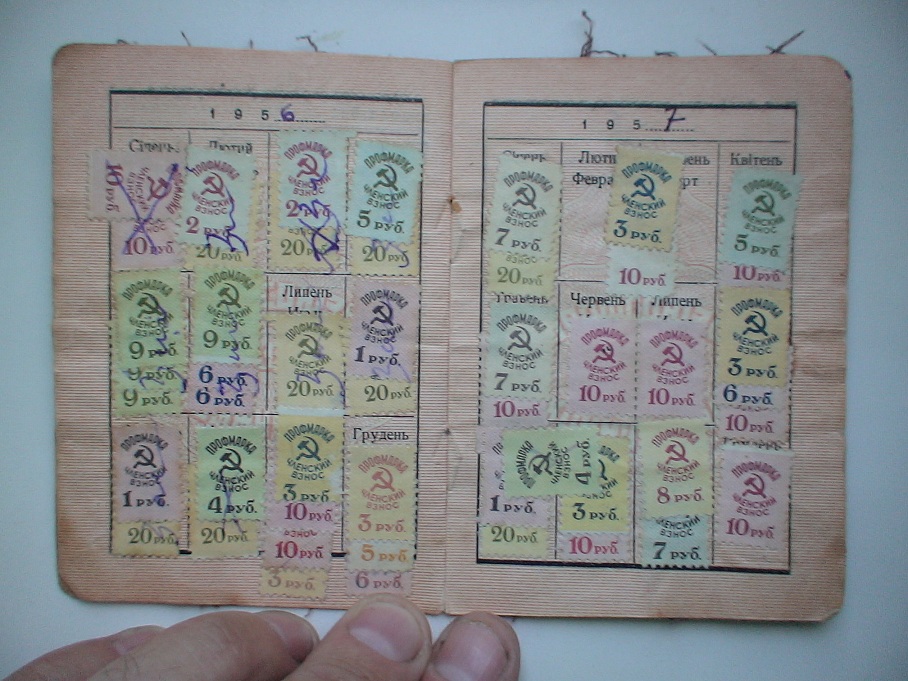 1956
Січень
Лютий
10 РУБ.
ПРОФМАРКА
ЧЛЕНСКИЙ
ВЗНОС
2 РУБ.
ПРОФМАРКА
ЧЛЕНСКИЙ
ВЗНОС
2 РУБ.
ПРОФМАРКА
ЧЛЕНСКИЙ
ВЗНОС
5 РУБ.
10 РУБ.
20 РУБ.
20 РУБ.
20 РУБ.
ПРОФМАРКА
ЧЛЕНСКИЙ
ВЗНОС
9 РУБ.
9 РУБ.
ПРОФМАРКА
ЧЛЕНСКИЙ
ВЗНОС
9 РУБ.
6 РУБ.
6 РУБ.
Липень
ПРОФМАРКА
ЧЛЕНСКИЙ
ВЗНОС
20 РУБ.
ПРОФМАРКА
ЧЛЕНСКИЙ
ВЗНОС
1 РУБ.
20 РУБ.
ПРОФМАРКА
ЧЛЕНСКИЙ
ВЗНОС
1 РУБ.
20 РУБ.
ПРОФМАРКА
ЧЛЕНСКИЙ
ВЗНОС
4 РУБ.
20 РУБ.
ПРОФМАРКА
ЧЛЕНСКИЙ
ВЗНОС
3 РУБ.
10 РУБ.
ВЗНОС
10 РУБ.
3 РУБ.
Грудень
ПРОФМАРКА
ЧЛЕНСКИЙ
ВЗНОС
3 РУБ.
5 РУБ.
6 РУБ.
1957
Січень
Квітень
ПРОФМАРКА
ЧЛЕНСКИЙ
ВЗНОС
7 РУБ.
20 РУБ.
ПРОФМАРКА
ЧЛЕНСКИЙ
ВЗНОС
3 РУБ.
10 РУБ.
ПРОФМАРКА
ЧЛЕНСКИЙ
ВЗНОС
5 РУБ.
10 РУБ.
Травень
Червень
Липень
ПРОФМАРКА
ЧЛЕНСКИЙ
ВЗНОС
7 РУБ.
10 РУБ.
ПРОФМАРКА
ЧЛЕНСКИЙ
ВЗНОС
10 РУБ.
ПРОФМАРКА
ЧЛЕНСКИЙ
ВЗНОС
10 РУБ.
ПРОФМАРКА
ЧЛЕНСКИЙ
ВЗНОС
3 РУБ.
6 РУБ.
10 РУБ.
ПРОФМАРКА
ЧЛЕНСКИЙ
ВЗНОС
4 РУБ.
1 РУБ.
20 РУБ.
3 РУБ.
10 РУБ.
ПРОФМАРКА
ЧЛЕНСКИЙ
ВЗНОС
8 РУБ.
ЧЛЕНСКИЙ
ВЗНОС
7 РУБ.
ПРОФМАРКА
ЧЛЕНСКИЙ
ВЗНОС
10 РУБ.